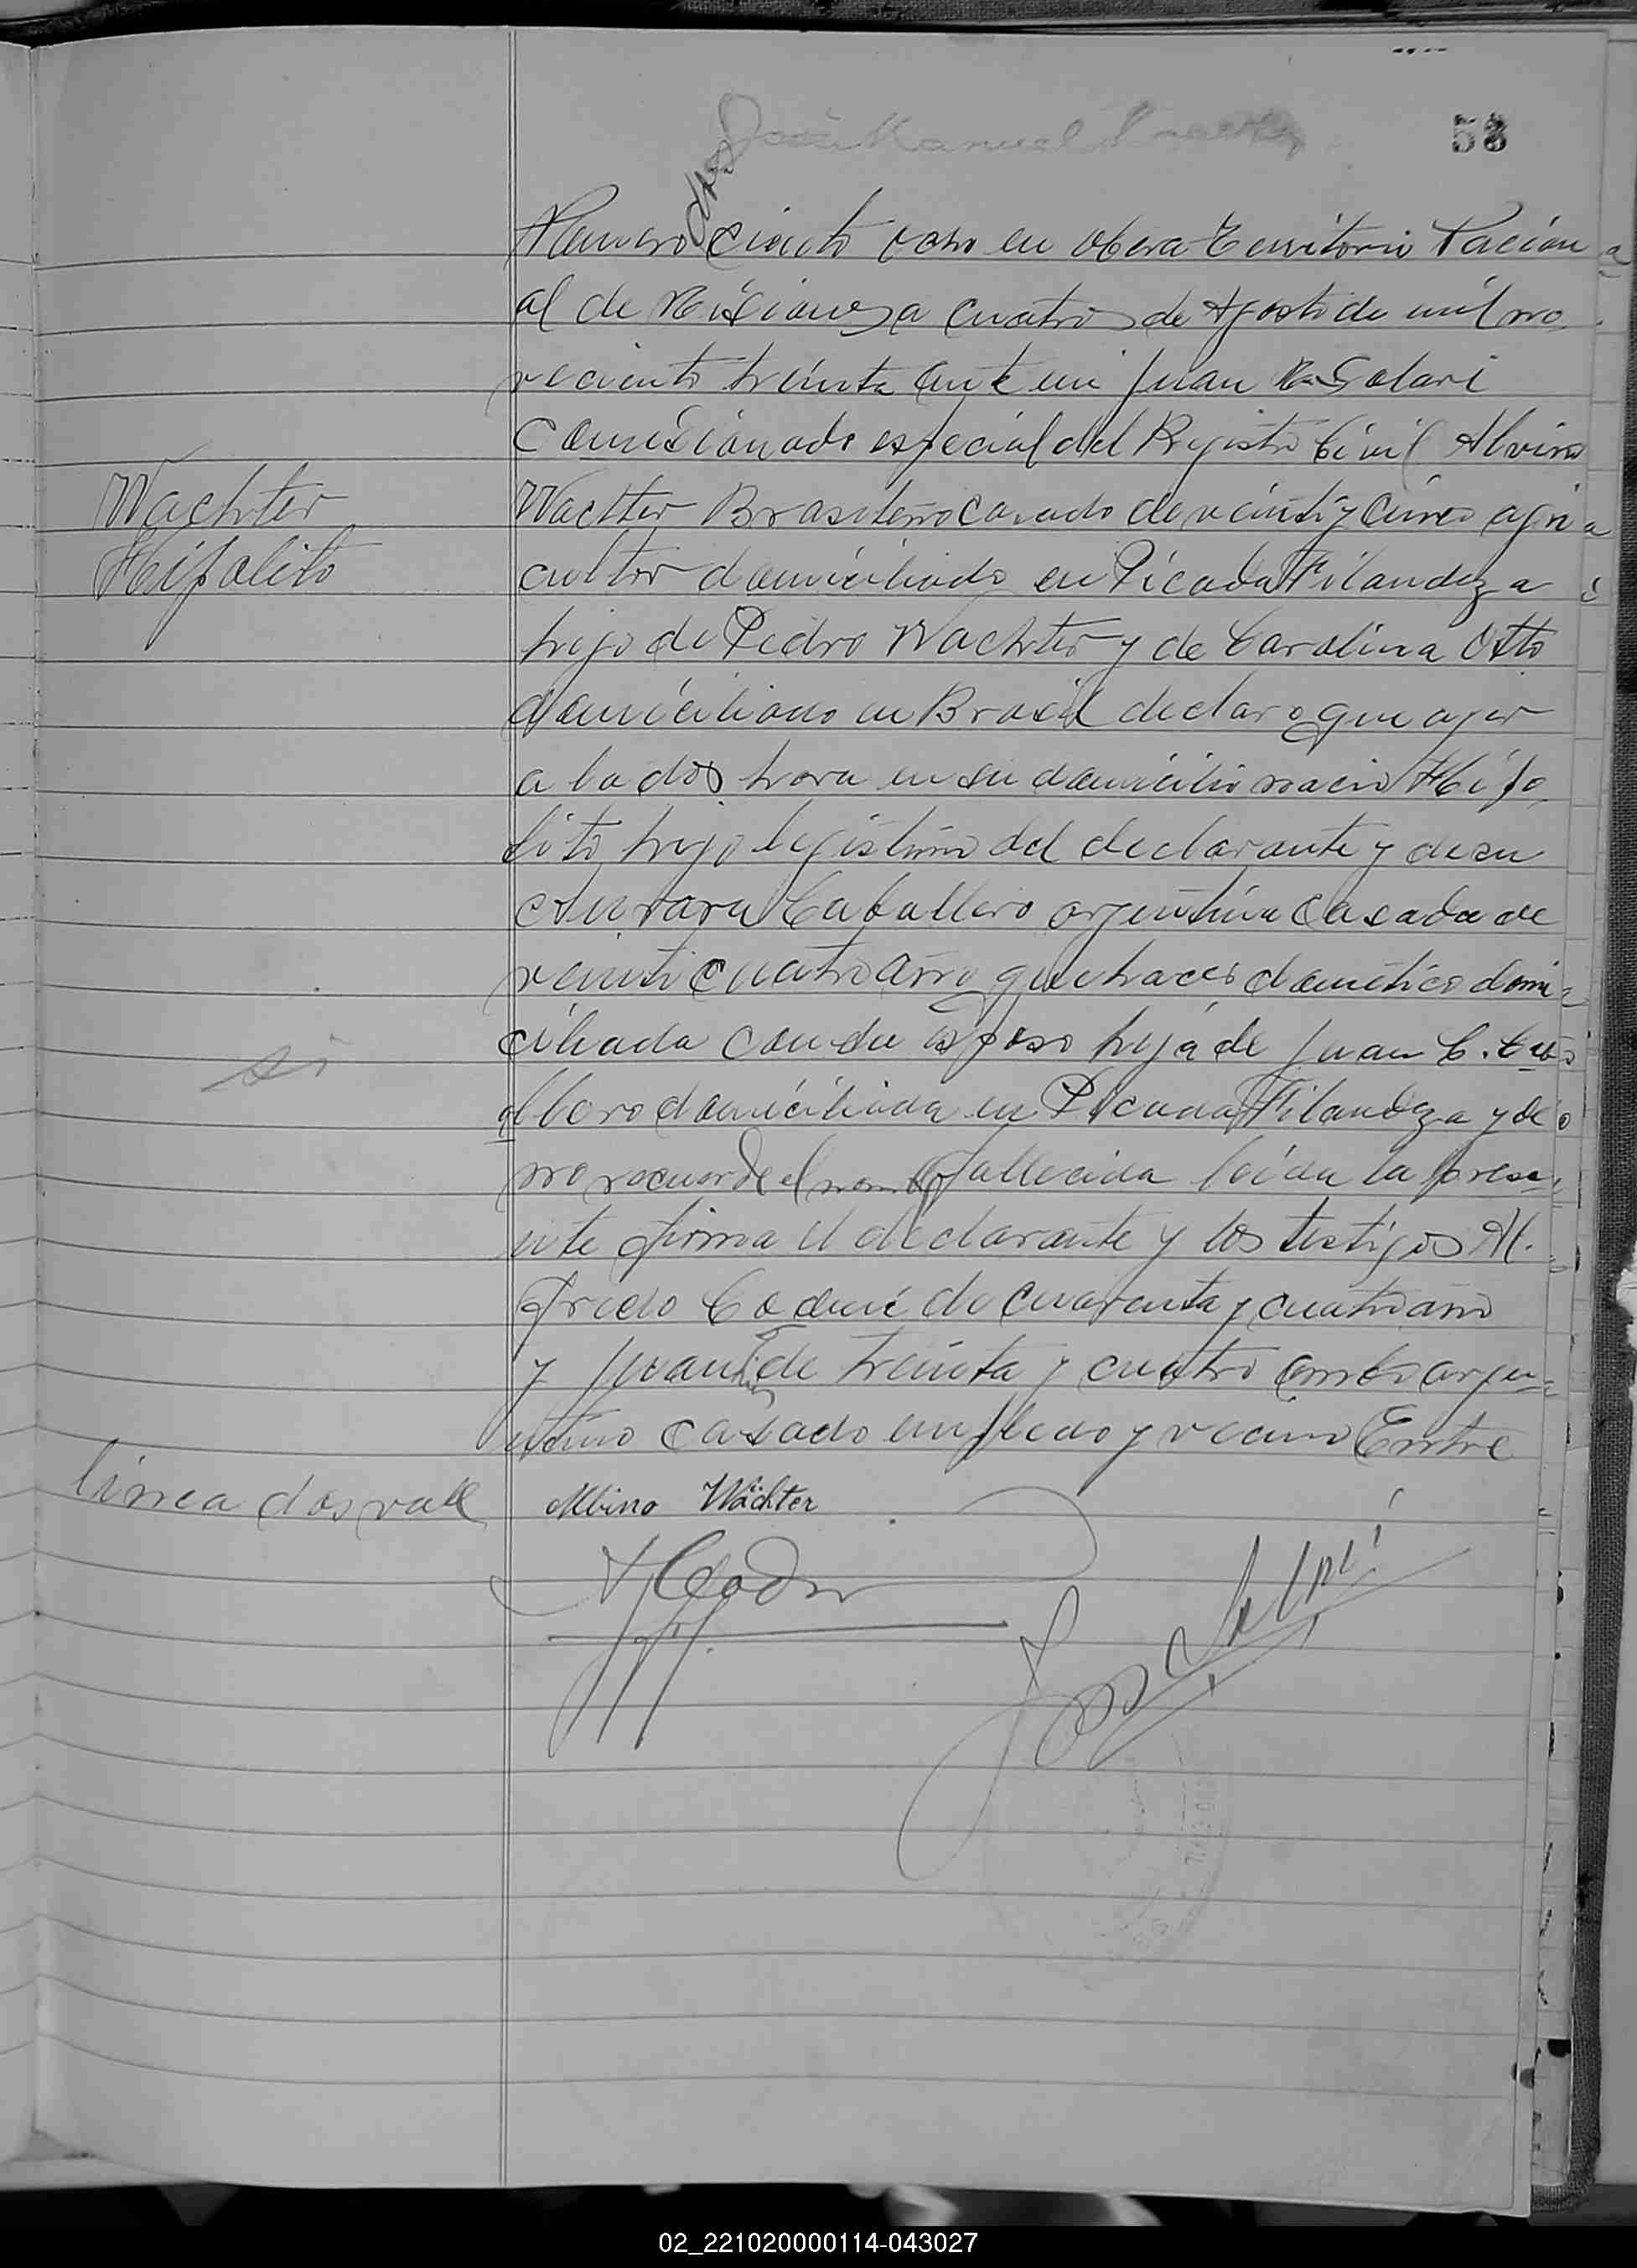 58
José Manuel
dos
Numero ciento ocho en Obera Territorio Nacion
al de Misiones a cuatro de Agosto de mil no
veciento treinta ante mi Juan R. Solari
Comisionado especial del Registro Civil Alvino
Wachter
Wachter Brasileño casado de veinti y cinco agri
Hipolito
cultor domiciliado en Picada Filandeza
hijo de Pedro Wachter y de Carolina Otto
domiciliado en Brasil declaro que ayer
a la dos hora en su domicilio nacio Hipo
lito hijo legistimo del declarante y de su
Caballero argentina casada de
veinti cuatro año quehaces domético domi
ciliada con su esposo hija de Juan C. Cab
si
allero domiciliada en Picada Filandeza y de
no recuerde el nombre fallecida leida la prese
nte firma el declarante y los testigos Al
fredo Codui de cuarenta y cuatro año
y Juan de treinta y cuatro años argen
tino casado empleado y vecino Entre
linea dos vale
Albino Wächter
02_221020000114-043027